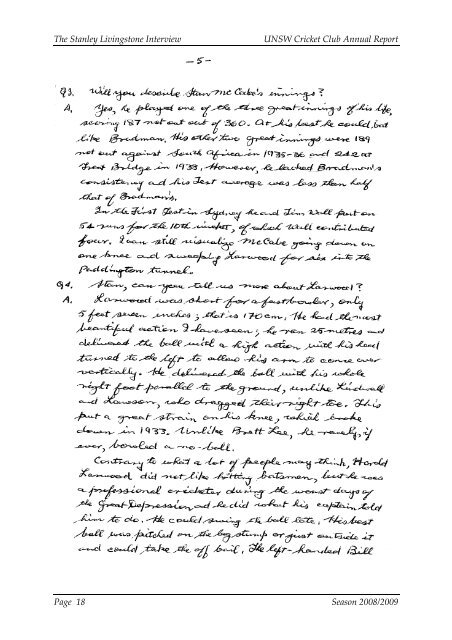 The Stanley Livingstone Interview UNSW Cricket Club Annual Report
- 5 -
Q3. Will you describe Stan McCabe's innings?
A. Yes, he played one of the three great innings of his life,
scoring 187 not out out of 360. At his best he could bat
like Bradman. His other two great innings were 189
not out against South Africa in 1935-36 and 232 at
Trent Bridge in 1938. However, he lacked Bradman's
consistency and his Test average was less than half
that of Bradman's.
In the First Test in Sydney he and Tim Wall put on
54 runs for the 10th wicket, of which Wall contributed
four. I can still visualize McCabe going down on
one knee and sweeping Larwood for six into the
Paddington tunnel.
Q4. Stan, can you tell us more about Larwood?
A. Larwood was short for a fast bowler, only
5 feet seven inches; that is 170 cm. He had the most
beautiful action I have seen; he ran 25 metres and
delivered the ball with a high action with his head
turned to the left to allow his arm to come over
vertically. He delivered the ball with his whole
right foot parallel to the ground, unlike Lindwall
and Lawson, who dragged their right toe. This
put a great strain on his knee, which broke
down in 1933. Unlike Brett Lee, he rarely, if
ever, bowled a no-ball.
Contrary to what a lot of people may think, Harold
Larwood did not like hitting batsmen, but he was
a professional cricketer during the worst days of
the Great Depression and he did what his captain told
him to do. He could swing the ball late. His best
ball was pitched on the leg stump or just outside it
and could take the off bail. The left-handed Bill
Page 18 Season 2008/2009